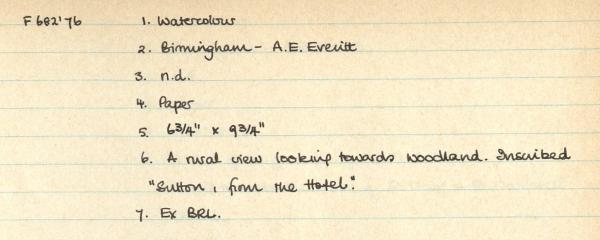 F682'76 1. Watercolour
2. Birmingham - A.E. Everitt
3. n.d.
4. Paper
5. 6 3/4" x 9 3/4"
6. A rural view looking towards woodland. Inscribed
"Sutton, from the Hotel."
7. Ex BRL.